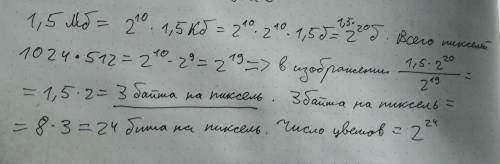 1,5 Мб = 2¹⁰ · 1,5 Кб = 2¹⁰ · 2¹⁰ · 1,5б = 1,5·2²⁰б. Всего пикселей
1024 · 512 = 2¹⁰ · 2⁹ = 2¹⁹ => в изображении 1,5 · 2²⁰ / 2¹⁹ =
= 1,5 · 2 = 3 байта на пиксель. 3 байта на пиксель =
= 8 · 3 = 24 бита на пиксель. Число цветов = 2²⁴